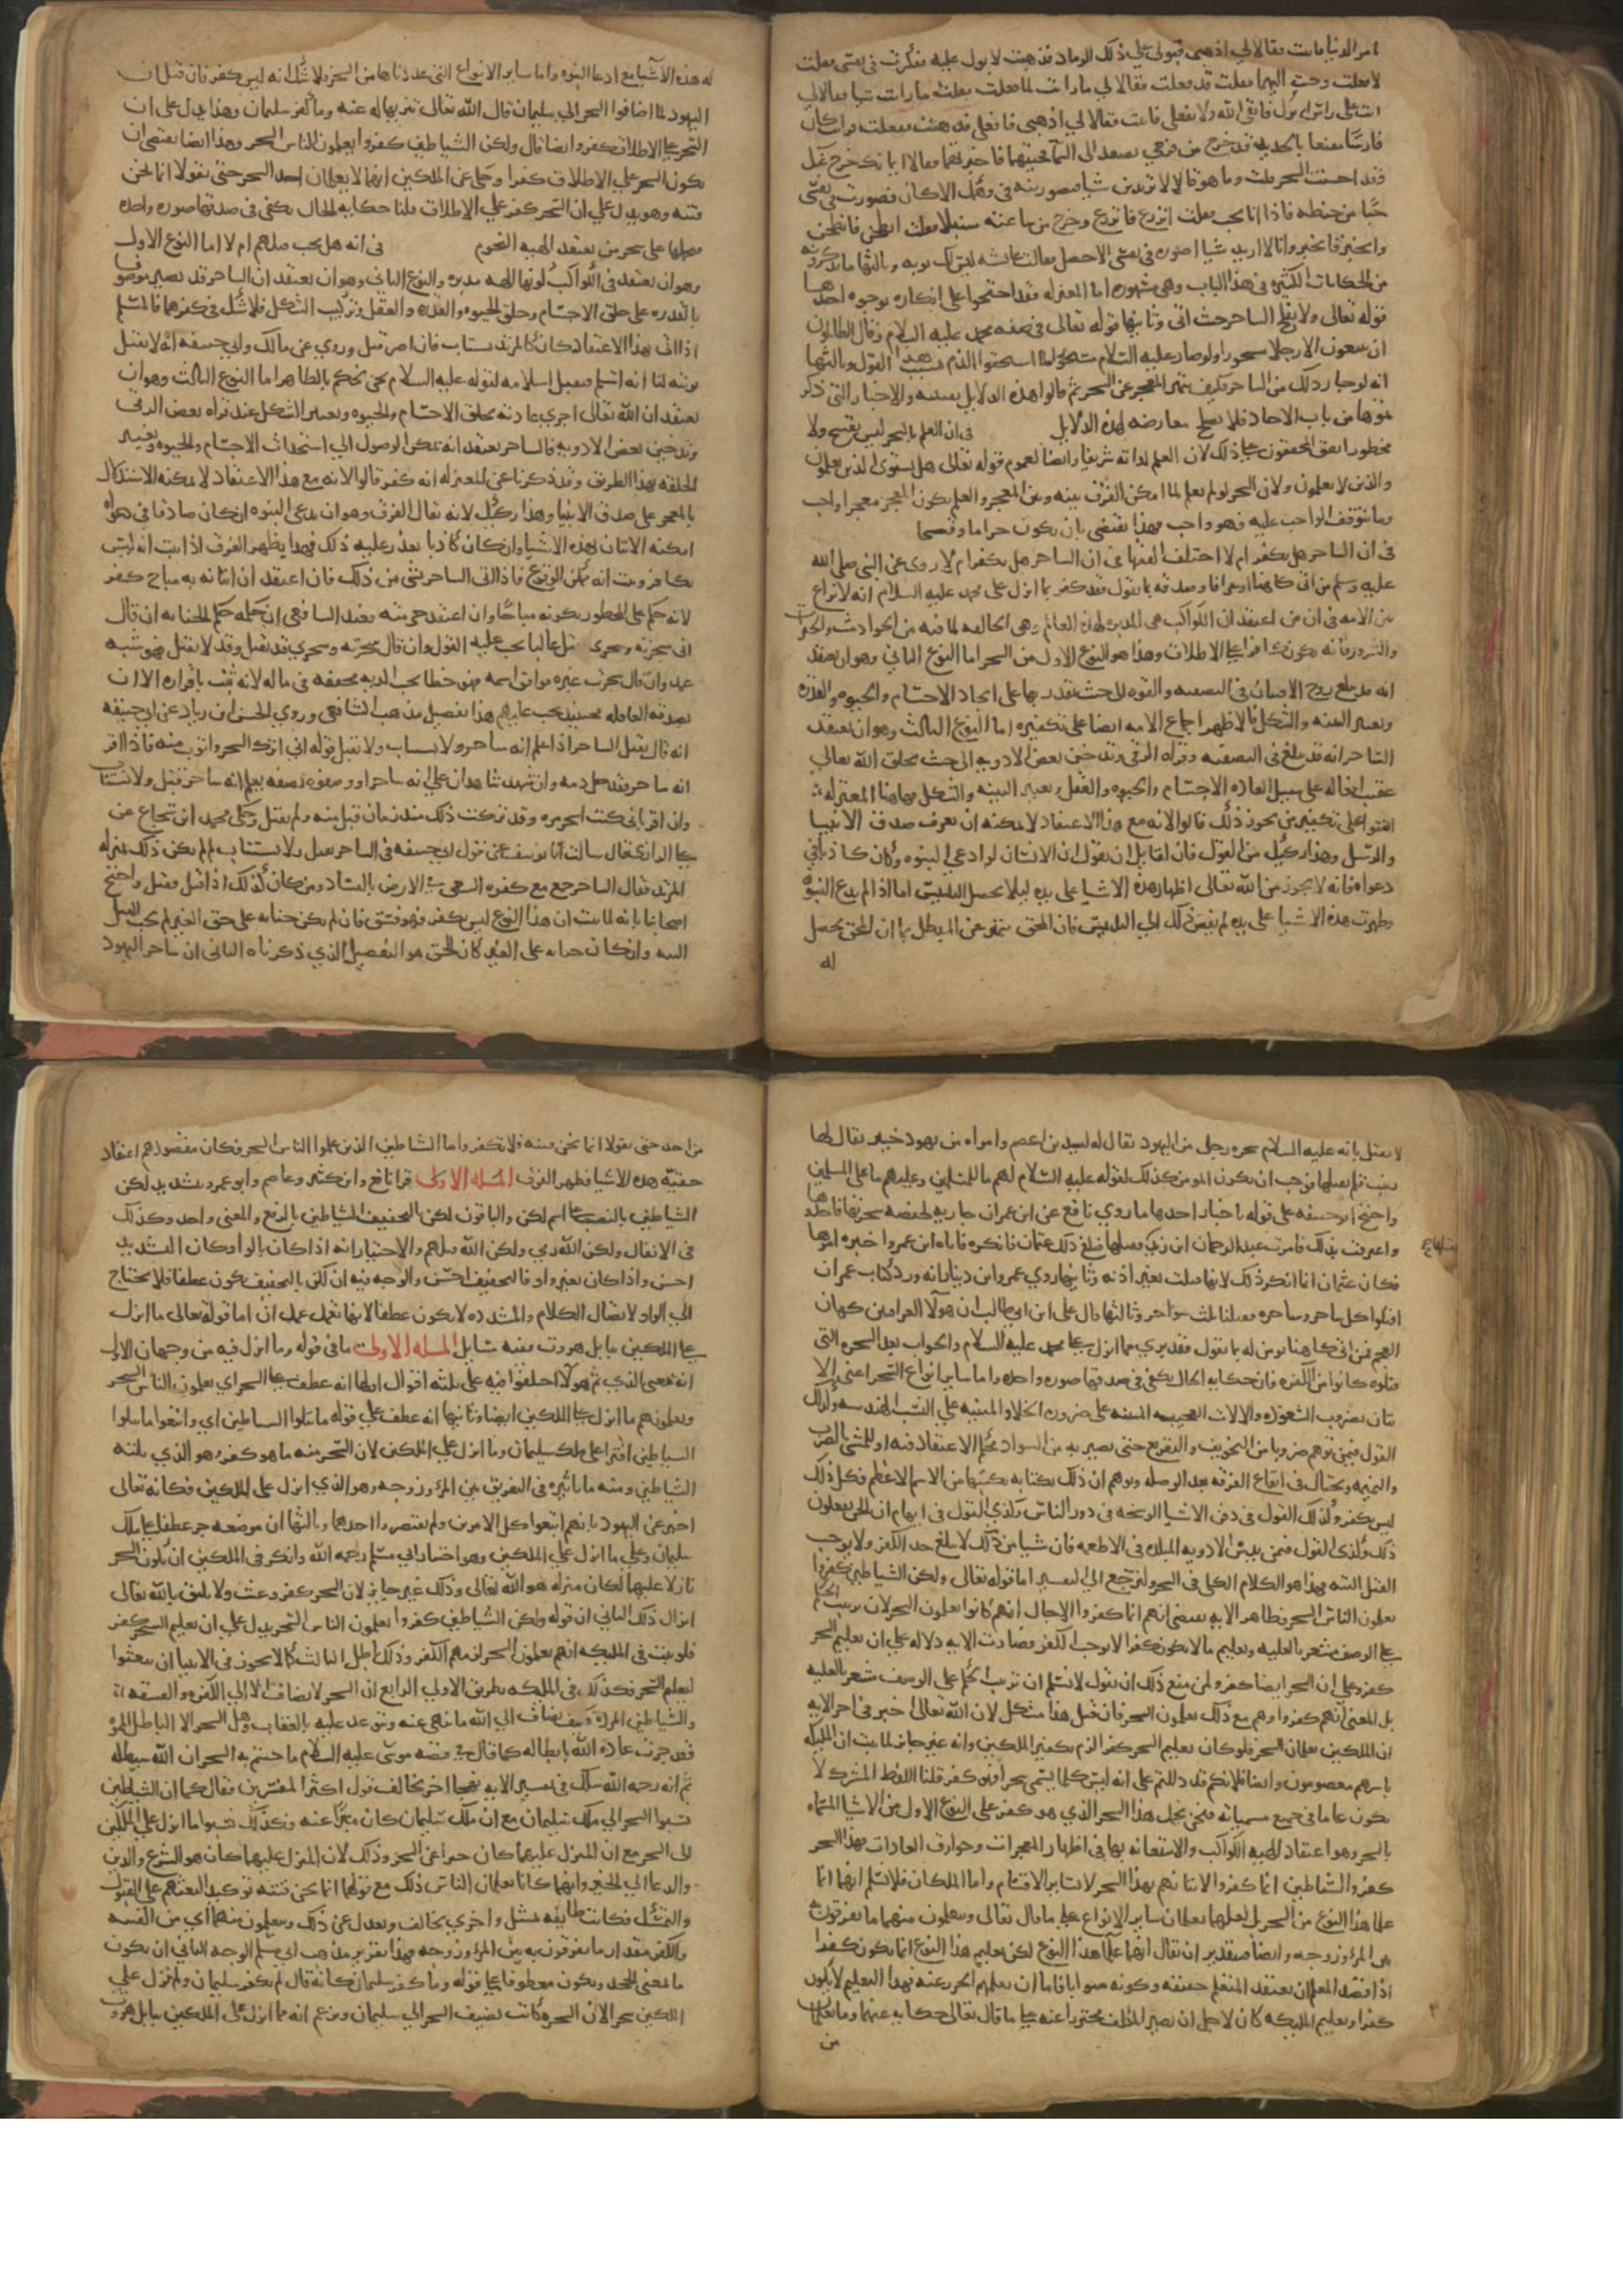 امر الدنيا فابت فقالا لي اذهبي فبولي علي ذلك الرماد فذهبت لابول عليه ففكرت في نفسي فقلت
لا فعلت وجيت اليهما فقلت قد فعلت فقالا لي ما رايت لما فعلت فقلت ما رايت شيا فقالا لي
انت على راس امرك فاتقي الله ولا تفعلي فابيت فقالا لي اذهبي فافعلي فذهبت ففعلت فرايت كان
فارسا مقنعا بالحديد قد خرج من فرجي فصعد الى السما فجيتهما فاخبرتهما فقالا ايمانك خرج عنك
وقد احسنت السحر فقلت وما هو قالا لا تريدين شيا فتصورينه في وهمك الا كان فصورت في نفسي
حبا من حنطة فاذا انا بحب فقلت انزرع فانزرع وخرج من ساعته سنبلا فقلت انطحن فانطحن
وانخبز فانخبز وانا لا اريد شيا اصوره في نفسي الا حصل فقالت عايشه ليس لك توبه وثالثها ما يذكرونه
من الحكايات الكثيره في هذا الباب وهي مشهوره اما المعتزله فقد احتجوا على انكاره بوجوه احدها
قوله تعالى ولا يفلح الساحر حيث اتى وثانيها قوله تعالى في صفه محمد عليه السلام وقال الظالمون
ان تتبعون الا رجلا مسحورا ولو صار عليه السلام مسحورا لما استحقوا الذم بسبب هذا القول وثالثها
انه لو جاز ذلك من الساحر فكيف يتميز المعجز عن السحر ثم قالوا هذه الدلايل يقينيه والاخبار التي ذكر
تموها من باب الاحاد فلا تصلح معارضه لهذه الدلايل في ان العلم بالسحر ليس بقبيح ولا
محظور اتفق المحققون على ذلك لان العلم لذاته شريف وايضا لعموم قوله تعالى هل يستوي الذين يعلمون
والذين لا يعلمون ولان السحر لو لم يعلم لما امكن الفرق بينه وبين المعجز والعلم بكون المعجز معجزا واجب
وما يتوقف الواجب عليه فهو واجب فهذا يقتضي بان يكون حراما وقبيحا
في ان الساحر هل يكفر ام لا اختلف الفقها في ان الساحر هل يكفر ام لا روي عن النبي صلى الله
عليه وسلم من اتى كاهنا او عرافا وصدقه بما يقول فقد كفر بما انزل على محمد عليه السلام انه لا نزاع
بين الامه في ان من اعتقد ان الكواكب هي المدبره لهذا العالم وهي الخالقه لما فيه من الحوادث والخيرات
والشرور فانه يكون كافرا على الاطلاق وهذا هو النوع الاول من السحر اما النوع الثاني وهو ان يعتقد
انه قد يبلغ روح الانسان في التصفيه والقوه الى حيث يقدر بها على ايجاد الاجسام والحيوه والقدره
وتغيير البنيه والشكل فالاظهر اجماع الامه ايضا على تكفيره اما النوع الثالث وهو ان يعتقد
الساحر انه قد يبلغ في التصفيه وقراه الرقي وتدخين بعض الادويه الى حيث يخلق الله تعالى
عقيب افعاله على سبيل العاده الاجسام والحيوه والعقل وتغيير البنيه والشكل فهاهنا المعتزله
اتفقوا على تكفير من يجوز ذلك قالوا لانه مع هذا الاعتقاد لا يمكنه ان يعرف صدق الانبيا
والرسل وهذا ركيك من القول فان لقايل ان يقول ان الانسان لو ادعى النبوه وكان كاذبا في
دعواه فانه لا يجوز من الله تعالى اظهار هذه الاشيا على يده ليلا يحصل التلبيس اما اذا لم يدع النبوه
وظهرت هذه الاشيا على يده لم يفض ذلك الى التلبيس فان المحق يتميز عن المبطل بما ان المحق يحصل
له
له هذه الاشيا مع ادعا النبوه واما ساير الانواع التي عددناها من السحر فلا شك انه ليس بكفر فان قيل ان
اليهود لما اضافوا السحر الى سليمان قال الله تعالى تنزيها له عنه وما كفر سليمان وهذا يدل على ان
السحر على الاطلاق كفر وايضا قال ولكن الشياطين كفروا يعلمون الناس السحر وهذا ايضا يقتضي ان
يكون السحر على الاطلاق كفرا وحكى عن الملكين انهما لا يعلمان احد السحر حتى يقولا انما نحن
فتنه وهو يدل علي ان السحر كفر علي الاطلاق قلنا حكايه الحال يكفي في صدقها صوره واحده
فيحملها على سحر من يعتقد الهيه النجوم في انه هل يجب قتلهم ام لا اما النوع الاول
وهو ان يعتقد في الكواكب كونها الهه مدبره والنوع الثاني وهو ان يعتقد ان الساحر قد يصير موصوفا
بالقدره على خلق الاجسام وخلق الحيوه والقدره والعقل وتركيب الشكل فلا شك في كفرهما فالمسلم
اذا اتى بهذا الاعتقاد كان كالمرتد يستتاب فان اصر قتل وروي عن مالك وابي حنيفه انه لا تقبل
توبته لنا انه اسلم فيقبل اسلامه لقوله عليه السلام نحن نحكم بالظاهر اما النوع الثالث وهو ان
يعتقد ان الله تعالى اجري عادته بخلق الاجسام والحيوه وتغيير الشكل عند قراه بعض الرقي
وتدخين بعض الادويه فالساحر يعتقد انه يمكن الوصول الى استحداث الاجسام والحيوه وتغيير
الخلقه بهذا الطريق وقد ذكرنا عن المعتزله انه كفر قالوا لانه مع هذا الاعتقاد لا يمكنه الاستدلال
بالمعجز على صدق الانبيا وهذا ركيك لانه يقال الفرق وهو ان مدعي النبوه ان كان صادقا في دعواه
امكنه الاتيان بهذه الاشيا وان كان كاذبا تعذر عليه ذلك فبهذا يظهر الفرق اذا ثبت انه ليس
بكافر وثبت انه ممكن الوقوع فاذا اتى الساحر بشي من ذلك فان اعتقد ان اتيانه به مباح كفر
لانه حكم على المحظور بكونه مباحا وان اعتقد حرمته فعند الشافعي ان حكمه حكم الجنايه ان قال
اني سحرته وسحري يقتل غالبا يجب عليه القود وان قال سحرته وسحري قد يقتل وقد لا يقتل فهو شبه
عمد وان قال سحرت غيره فوافق اسمه فهو خطا يجب الديه مخففه في ماله لانه ثبت باقراره الا ان
تصدقه العاقله فحينيذ يجب عليهم هذا تفصيل مذهب الشافعي وروي الحسن ابن زياد عن ابي حنيفه
انه قال يقتل الساحر اذا علم انه ساحر ولا يستتاب ولا يقبل قوله اني اترك السحر واتوب منه فاذا اقر
انه ساحر فقد حل دمه وان شهد شاهدان على انه ساحر او وصفوه بصفه يعلم انه ساحر قتل ولا يستتاب
وان اقر باني كنت اسحر مره وقد تركت ذلك منذ زمان قبل منه ولم يقتل وحكى محمد ابن شجاع عن
علي الرازي قال سالت ابا يوسف عن قول ابي حنيفه في الساحر يقتل ولا يستتاب لم لم يكن ذلك بمنزله
المرتد فقال الساحر جمع مع كفره السعي في الارض بالفساد ومن كان كذلك اذا قتل قتل واحتج
اصحابنا بانه لما ثبت ان هذا النوع ليس بكفر فهو فسق فان لم يكن جنايه على حق الغير لم يجب القتل
البته وان كان جنايه على الغير كان الحق هو التفصيل الذي ذكرناه الثاني ان ساحر اليهود
لا يقتل بانه عليه السلام سحره رجل من اليهود يقال له لبيد بن اعصم وامراه من يهود خيبر يقال لها
زينب فلم يقتلهما فوجب ان يكون المومن كذلك لقوله عليه السلام لهم ما للمسلمين وعليهم ما على المسلمين
واحتج ابو حنيفه على قوله باخبار احدها ما روي نافع عن ابن عمر ان جاريه لحفصه سحرتها فاخذوها
واعترفت بذلك فامرت عبد الرحمان ابن زيد فقتلها فبلغ ذلك عثمان فانكره فاتاه ابن عمر واخبره امرها
فكان عثمان انما انكر ذلك لانها قتلت بغير اذنه وثانيها روي عمرو ابن دينار انه ورد كتاب عمر ان
اقتلوا كل ساحر وساحره فقتلنا ثلث سواحر وثالثها قال علي ابن ابي طالب ان هولا العرافين كهان
العجم فمن اتى كاهنا يومن له بما يقول فقد بري مما انزل على محمد عليه السلام والجواب لعل السحره التي
قتلوه كانوا من الكفره فان حكايه الحال يكفي في صدقها صوره واحده واما ساير انواع السحر اعني الا
تيان بضروب الشعوذه والالات العجيبه المبنيه على ضروره الخلا والمبنيه علي النسب الهندسيه وكذلك
القول فيمن يوهم ضروبا من التخويف والتقريع حتى يصير به من السواد محكم الاعتقاد فيه او يتمشى بالضرب
والنميمه ويحتال في ايقاع الفرقه بعد الوصله ويوهم ان ذلك بكتابه يكتبها من الاسم الاعظم فكل ذلك
ليس بكفر وكذلك القول في دفن الاشيا الوسخه في دور الناس وكذي القول في ايهام ان الجن يفعلون
ذلك وكذي القول فيمن يدس الادويه المبلده في الاطعمه فان شيا من ذلك لا يبلغ حد الكفر ولا يوجب
القتل البته فهذا هو الكلام الكلي في السحر ولنرجع الي التفسير اما قوله تعالى ولكن الشياطين كفروا
يعلمون الناس السحر فظاهر الايه يقتضي انهم انما كفروا لاجل انهم كانوا يعلمون السحر لان ترتيب الحكم
على الوصف مشعر بالعليه وتعليم ما لا يكون كفرا لا يوجب الكفر فصارت الايه داله على ان تعليم السحر
كفر وعلى ان السحر ايضا كفر ولمن منع ذلك ان يقول لا نسلم ان ترتيب الحكم على الوصف مشعر بالعليه
بل المعنى انهم كفروا وهم مع ذلك يعلمون السحر فان قيل هذا مشكل لان الله تعالى اخبر في اخر الايه
ان الملكين يعلمان السحر فلو كان تعليم السحر كفرا لزم تكفير الملكين وانه غير جايز لما ثبت ان المليكه
باسرهم معصومون وايضا فلانكم قد دللتم على انه ليس كلما يسمى سحرا فهو كفر قلنا اللفظ المشترك لا
يكون عاما في جميع مسمياته فنحن نحمل هذا السحر الذي هو كفر على النوع الاول من الاشيا المسماه
بالسحر وهو اعتقاد الهيه الكواكب والاستعانه بها في اظهار المعجزات وخوارق العادات فهذا السحر
كفر والشياطين انما كفروا لاتيانهم بهذا السحر لا بساير الاقسام واما الملكان فلا نسلم انهما انما
علما هذا النوع من السحر بل لعلهما يعلمان ساير الانواع على ما قال تعالى ويتعلمون منهما ما يفرقون به
بين المرء وزوجه وايضا فبتقدير ان يقال انهما علما هذا النوع لكن تعليم هذا النوع انما يكون كفرا
اذا قصد المعلم ان يعتقد المتعلم حقيقته وكونه صوابا فاما ان يعلمهم ليحترز عنه فهذا التعليم لا يكون
كفرا وتعليم المليكه كان لاجل ان يصير المكلف محترزا عنه على ما قال تعالى حكايه عنهما وما يعلمان
من
من احد حتى يقولا انما نحن فتنه فلا تكفر واما الشاطين الذين علموا الناس السحر فكان مقصودهم اعتقاد
حقيقه هذه الاشيا فظهر الفرق المسله الاولى قرا نافع وابن كثير وعاصم وابو عمرو بتشديد لكن
الشياطين بالنصب على اسم لكن والباقون لكن بالتخفيف الشياطين بالرفع والمعنى واحد وكذلك
في الانفال ولكن الله رمي ولكن الله قتلهم والاختيار انه اذا كان بالواو كان التشديد
احسن واذا كان بغير واو فالتخفيف احسن والوجه فيه ان لكن بالتخفيف يكون عطفا فلا يحتاج
الي الواو لاتصال الكلام والمشدده لا يكون عطفا لانها تعمل عمل ان اما قوله تعالى ما انزل
على الملكين ببابل هروت ففيه مسايل المسله الاولى ما في قوله وما انزل فيه من وجهان الاول
انه بمعنى الذي ثم هولا اختلفوا فيه على ثلثه اقوال اولها انه عطف على السحر اي يعلمون الناس السحر
ويعلمونهم ما انزل على الملكين ايضا وثانيها انه عطف علي قوله ما تتلوا الشياطين اي واتبعوا ما تتلوا
الشياطين افترا على ملك سليمان وما انزل علي الملكين لان السحر منه ما هو كفر وهو الذي تلته
الشياطين ومنه ما تاثيره في التفريق بين المرء وزوجه وهو الذي انزل على الملكين فكانه تعالى
اخبر عن اليهود بانهم اتبعوا كل الامرين ولم يقتصروا احدهما وثالثها ان موضعه جر عطفا على ملك
سليمان وعلي ما انزل علي الملكين وهو اختيار ابي مسلم رحمه الله وانكر في الملكين ان يكون السحر
نازلا عليهما لكان منزله هو الله تعالى وذلك غير جايز لان السحر كفر وعبث ولا يليق بالله تعالى
انزال ذلك الثاني ان قوله ولكن الشياطين كفروا يعلمون الناس السحر يدل علي ان تعليم السحر كفر
فلو ثبت في المليكه انهم يعلمون السحر لزمهم الكفر وذلك باطل الثالث كما لا يجوز في الانبيا ان يبعثوا
لتعليم السحر فكذلك في الملكه بطريق الاولي الرابع ان السحر لا يضاف الا الي الكفره والفسقه
والشياطين المرده وكيف يضاف الي الله ما نهى عنه وتوعد عليه بالعقاب وهل السحر الا الباطل المموه
وقد جرت عاده الله بابطاله كما قال في قصه موسى عليه السلام ما جيتم به السحر ان الله سيبطله
ثم انه رحه الله سلك في تفسير الايه نهجا اخر يخالف قول اكثر المفسرين فقال كما ان الشياطين
نسبوا السحر الي ملك سليمان مع ان ملك سليمان كان مبرا عنه فكذلك نسبوا ما انزل علي الملكين
الى السحر مع ان المنزل عليهما كان مبرا عن السحر وذلك لان المنزل عليهما كان هو الشرع والدين
والدعا الي الخير وانهما كانا يعلمان الناس ذلك مع قولهما انما نحن فتنه توكيدا لبعثهم على القبول
والتمسك فكانت طايفه تمسك واخري تخالف وتعدل عن ذلك ويتعلمون منهما اي من الفتنه
والكفر مقدار ما يفرقون به بين المرء وزوجه فهذا تقرير مذهب ابي مسلم الوجه الثاني ان يكون
ما بمعنى الجحد ويكون معطوفا على قوله وما كفر سليمان كانه قال لم يكفر سليمان ولم ينزل علي
الملكين سحر لان السحره كانت تضيف السحر الي سليمان وتزعم انه مما انزل على الملكين ببابل هروت